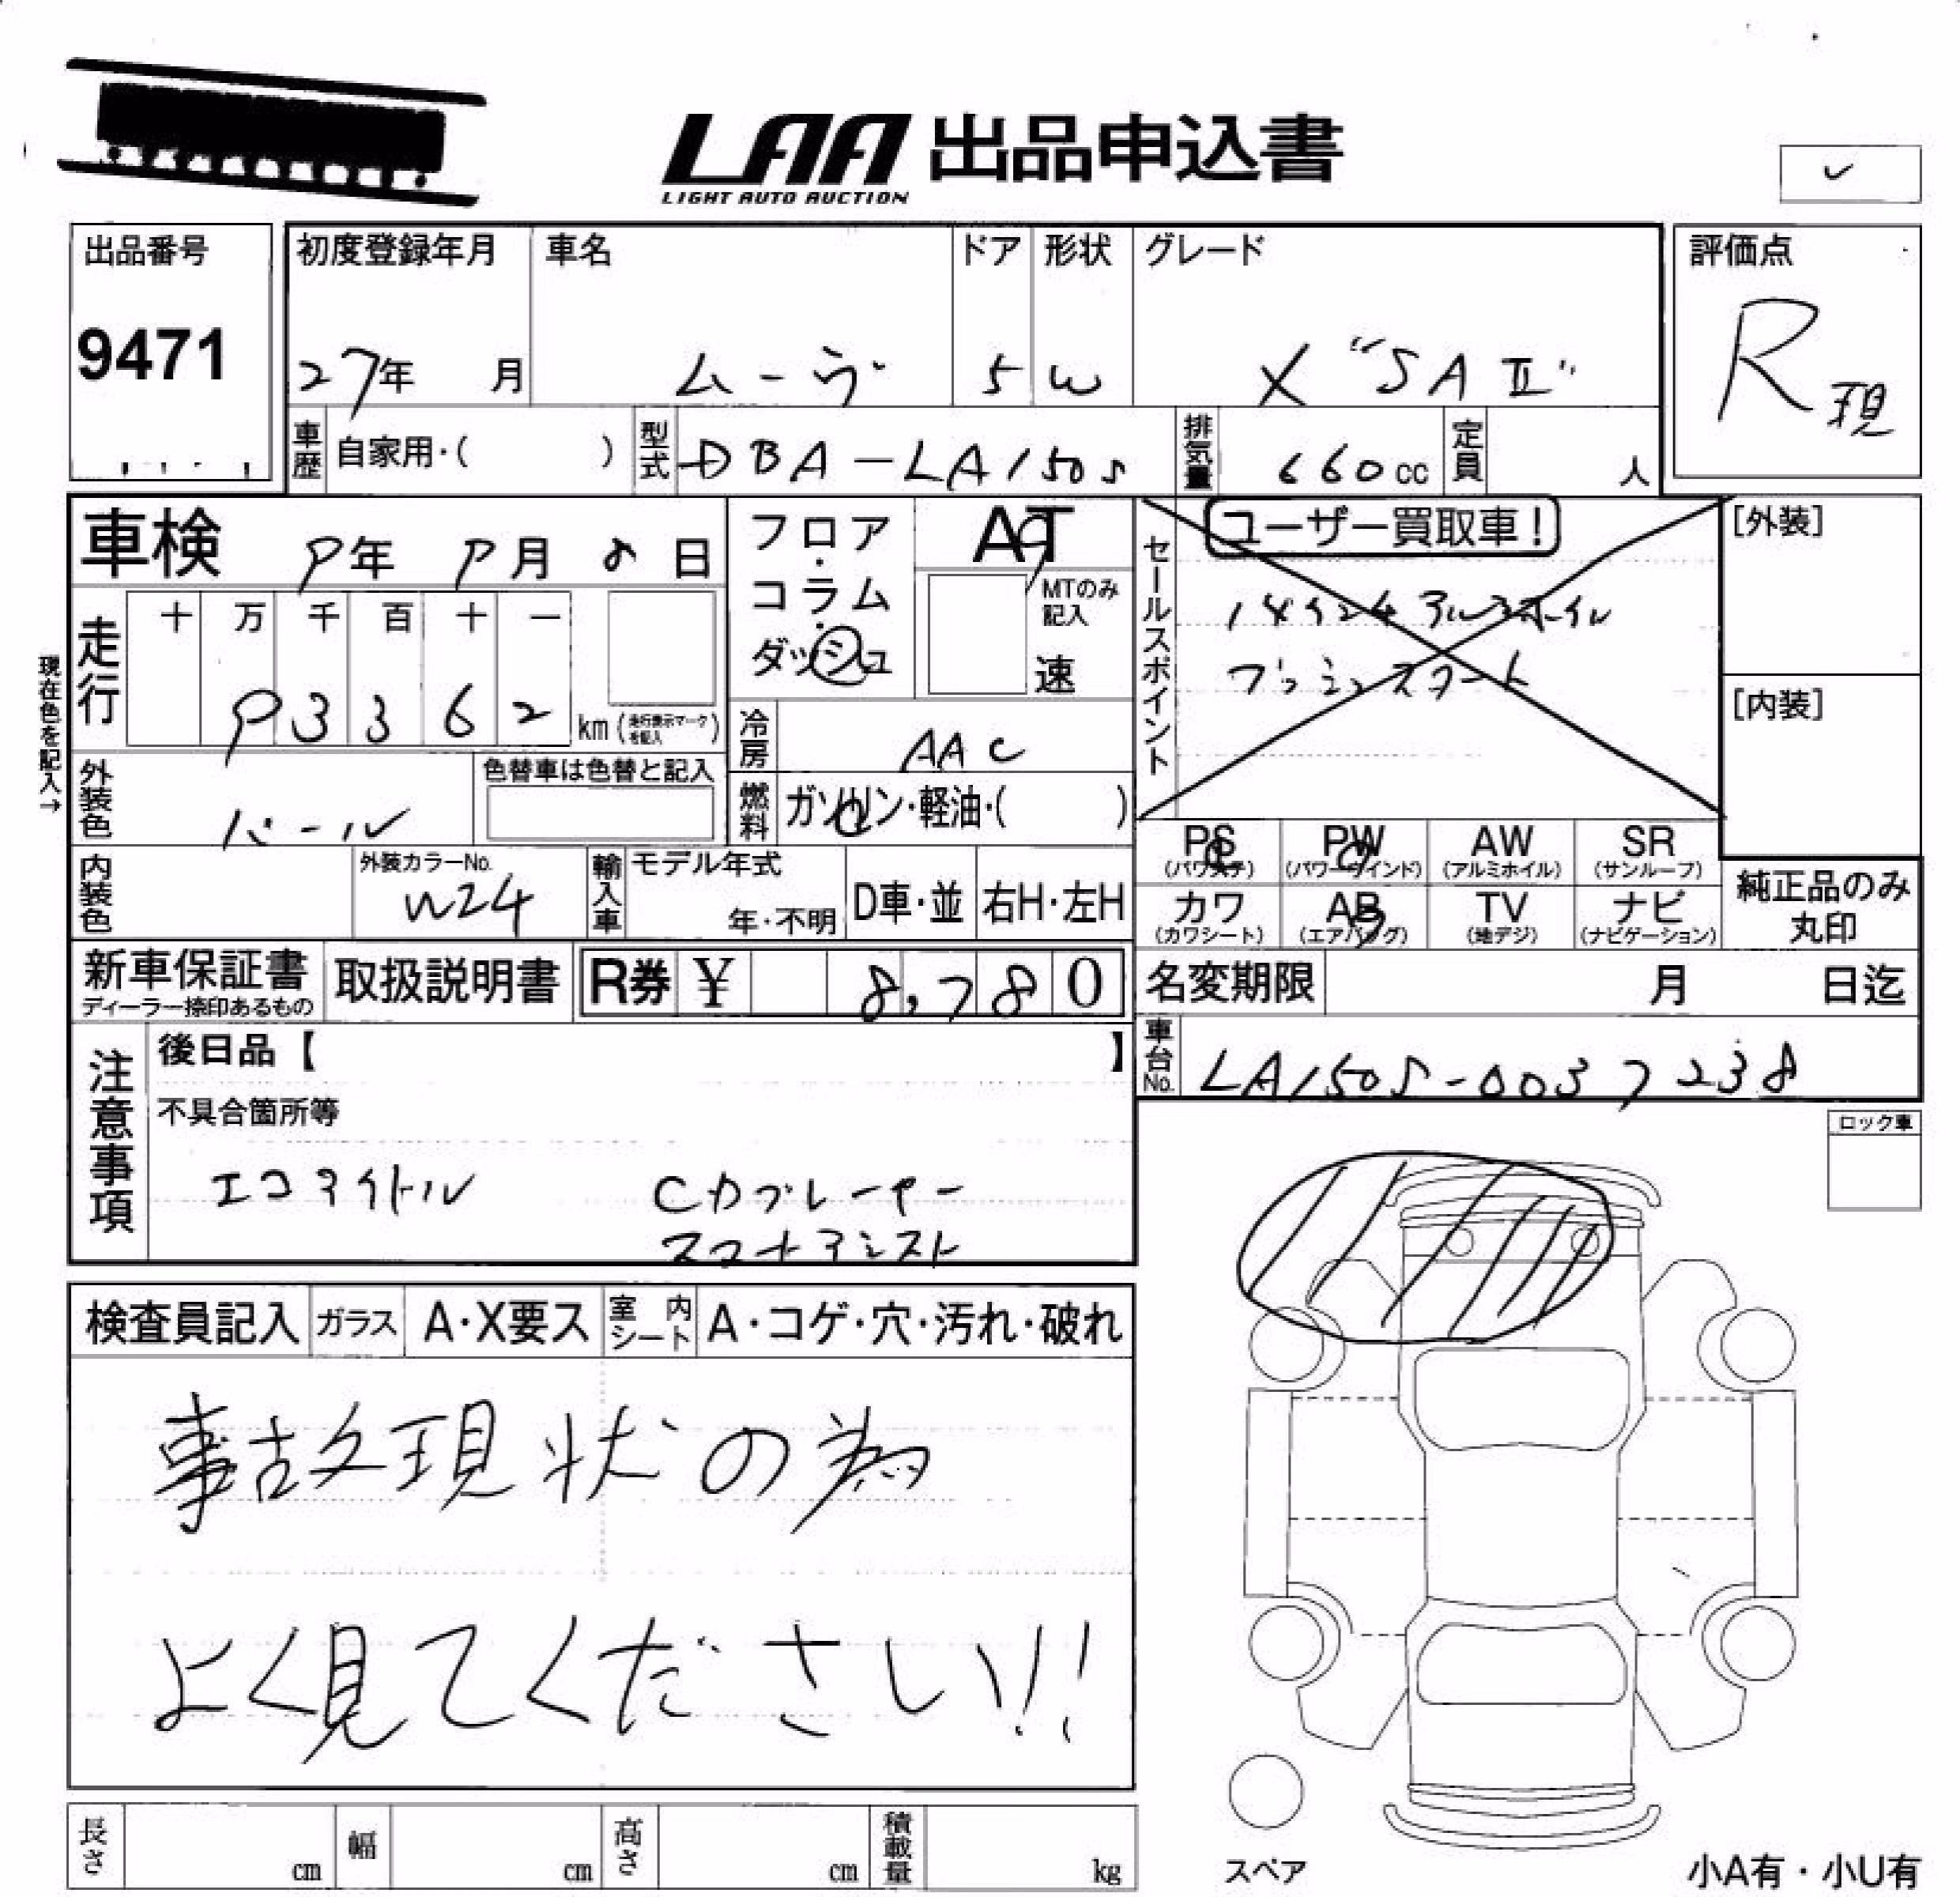 LAA 出品申込書
LIGHT AUTO AUCTION
出品番号
9471
初度登録年月
27年 月
車名
ムーヴ
ドア
5
形状
W
グレード
X "SAⅡ"
評価点
R現
車歴 自家用・( )
型式 DBA-LA150S
排気量 660cc
定員 人
車検 9年 9月 8日
走行 十 万 千 百 十 一
93362 km (走行表示マークを記入)
現在色を記入→
フロア・コラム・ダッシュ
AT
MTのみ記入
速
冷房 AAC
燃料 ガソリン・軽油・( )
外装色 パール
色替車は色替と記入
内装色
外装カラーNo.
W24
輸入車
モデル年式
年・不明
D車・並
右H・左H
セールスポイント
ユーザー買取車!
14インチアルミホイル
プッシュスタート
[外装]
[内装]
PS (パワステ)
PW (パワーウインド)
AW (アルミホイル)
SR (サンルーフ)
カワ (カワシート)
AB (エアバッグ)
TV (地デジ)
ナビ (ナビゲーション)
純正品のみ
丸印
新車保証書
ディーラー捺印あるもの
取扱説明書
R券 ¥ 8,780
名変期限 月 日迄
車台No. LA150S-0037238
注意事項
後日品【 】
不具合箇所等
エコアイドル CDプレーヤー
スマートアシスト
ロック車
検査員記入
ガラス A・X要ス
室内シート A・コゲ・穴・汚れ・破れ
事故現状の為
よく見てください!!
長さ cm
幅 cm
高さ cm
積載量 kg
スペア
小A有・小U有